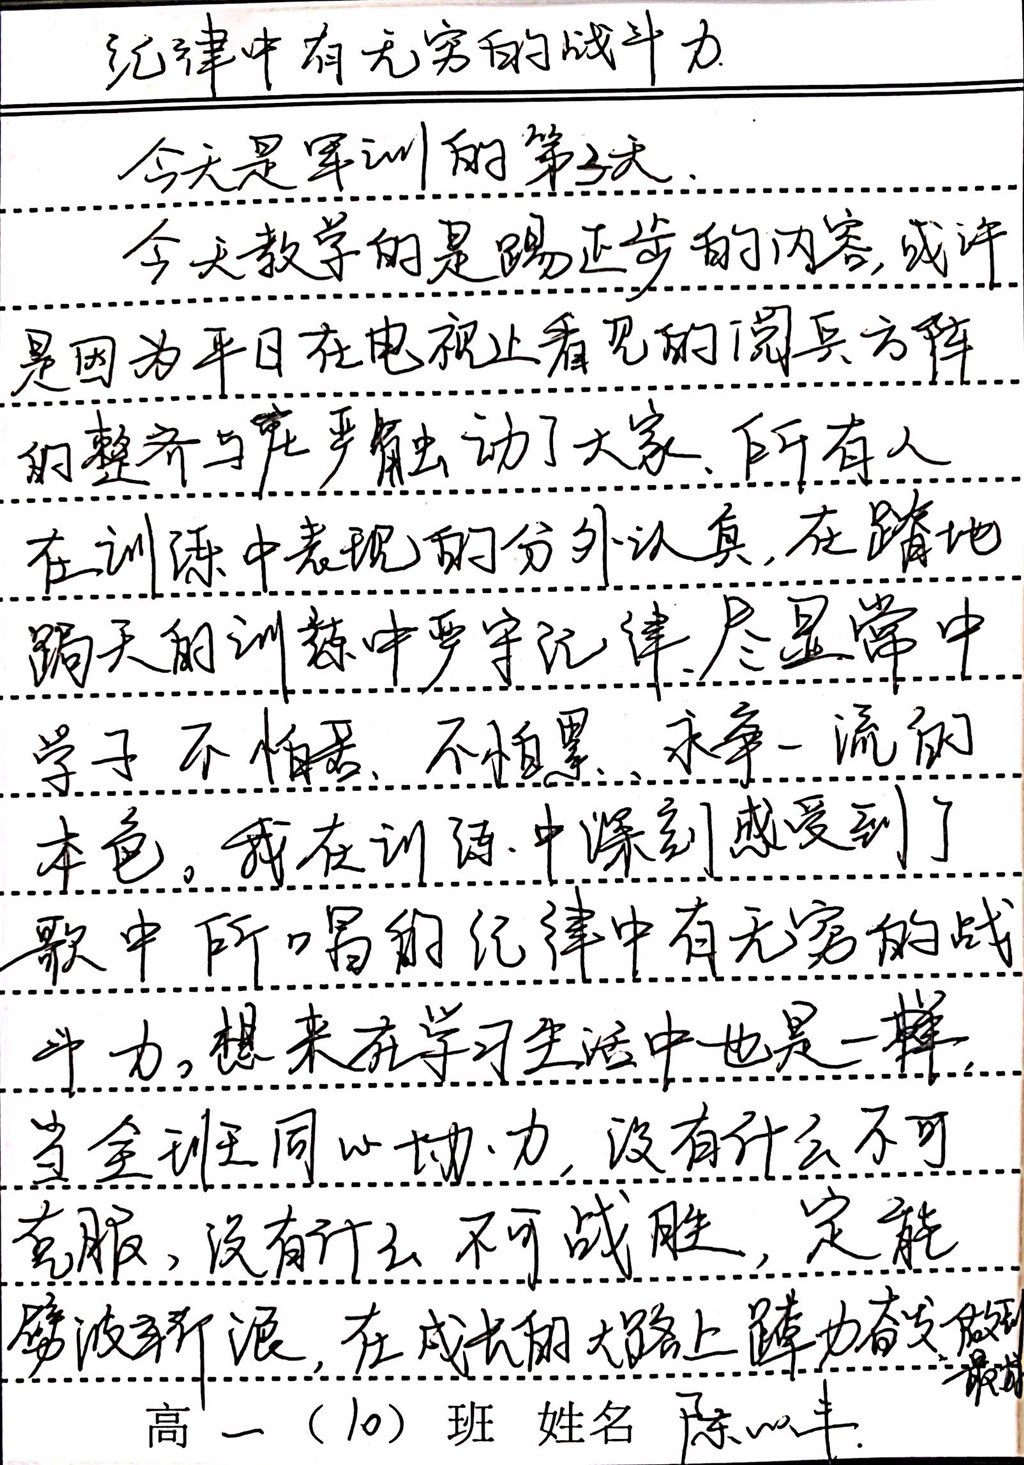 纪律中有无穷的战斗力.
今天是军训的第3天.
今天教学的是踢正步的内容,或许
是因为平日在电视上看见的阅兵方阵
的整齐与庄严触动了大家、所有人
在训练中表现的分外认真,在蹐地
跼天的训练中严守纪律、尽显常中
学子不怕苦、不怕累、永争一流的
本色。我在训练中深刻感受到了
歌中所唱的纪律中有无穷的战
斗力。想来在学习生活中也是一样,
当全班同心协力,没有什么不可
克服、没有什么不可战胜,定能
劈波斩浪,在成长的大路上踔力奋发,做到
最好
高一(10)班 姓名 陈 丰.